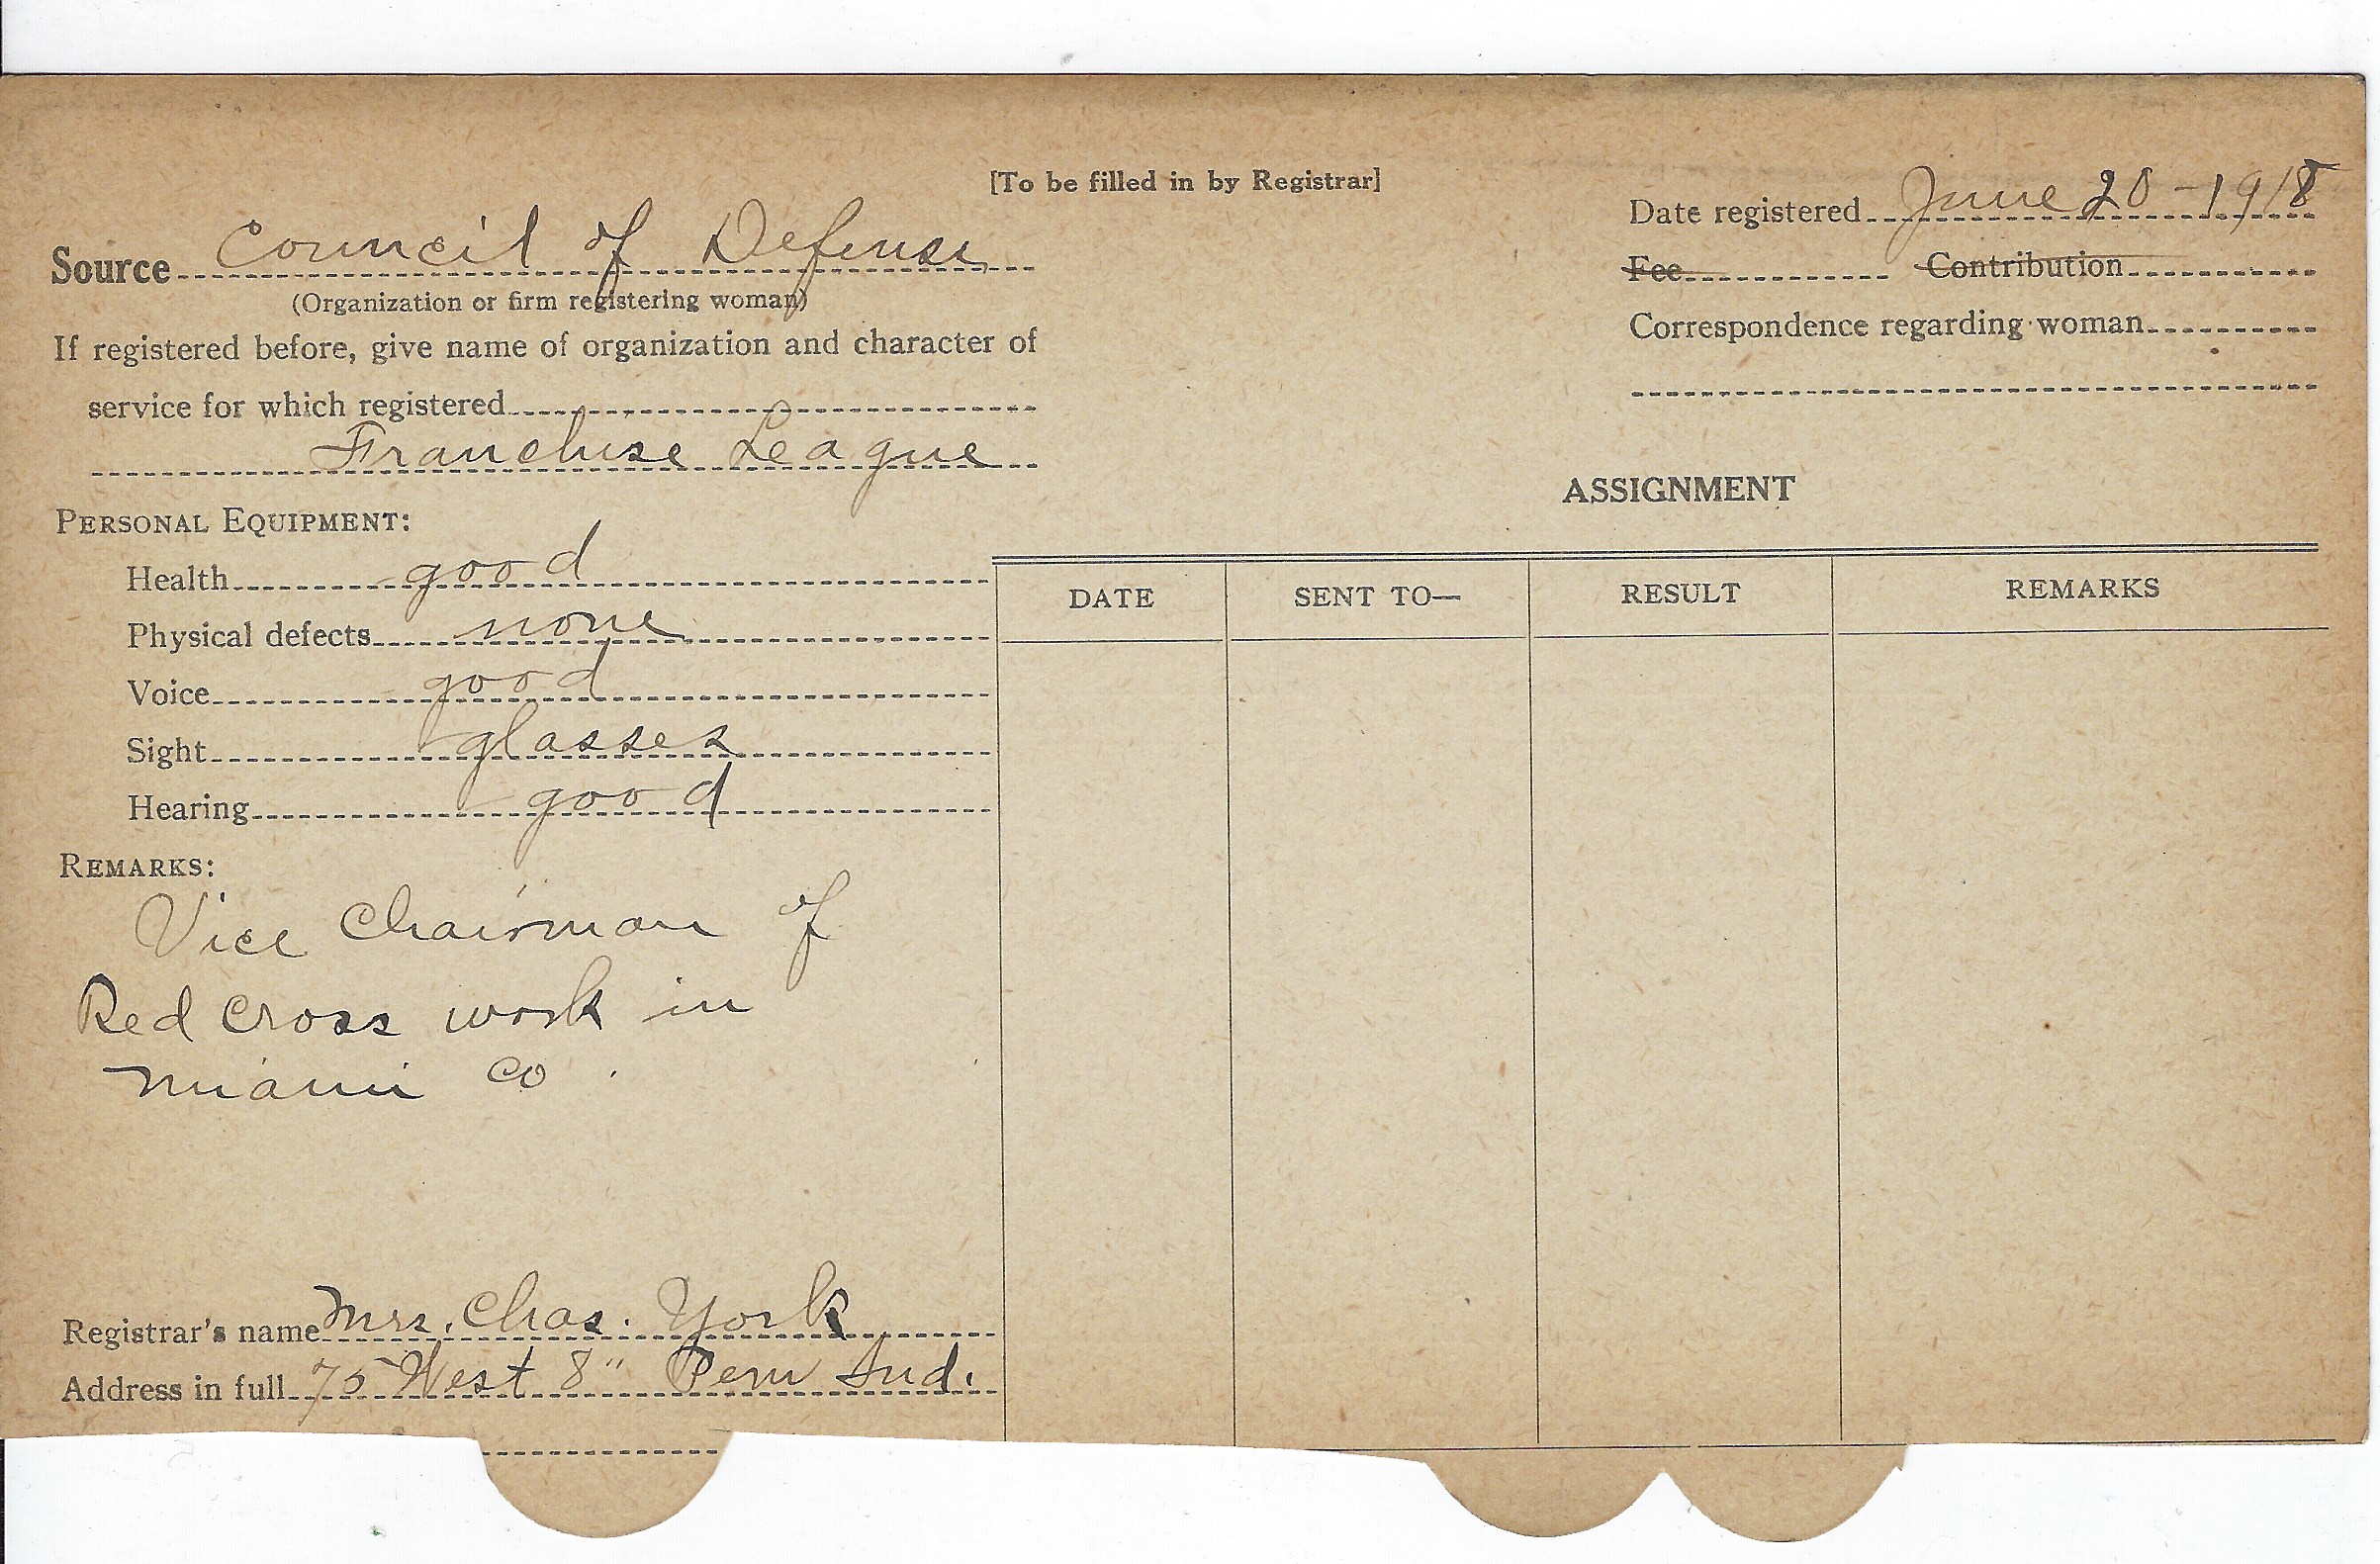 [To be filled in by Registrar]
Date registered June 20-1918
Source Council of Defense
(Organization or firm registering woman)
Fee Contribution
If registered before, give name of organization and character of
Correspondence regarding woman
service for which registered
Franchise League
PERSONAL EQUIPMENT:
Health good
Physical defects none
Voice good
Sight glasses
Hearing good
REMARKS:
Vice Chairman of
Red Cross work in
Miami Co.
Registrar's name Mrs. Chas. York
Address in full 75 West 8" Peru Ind.
ASSIGNMENT
DATE SENT TO— RESULT REMARKS